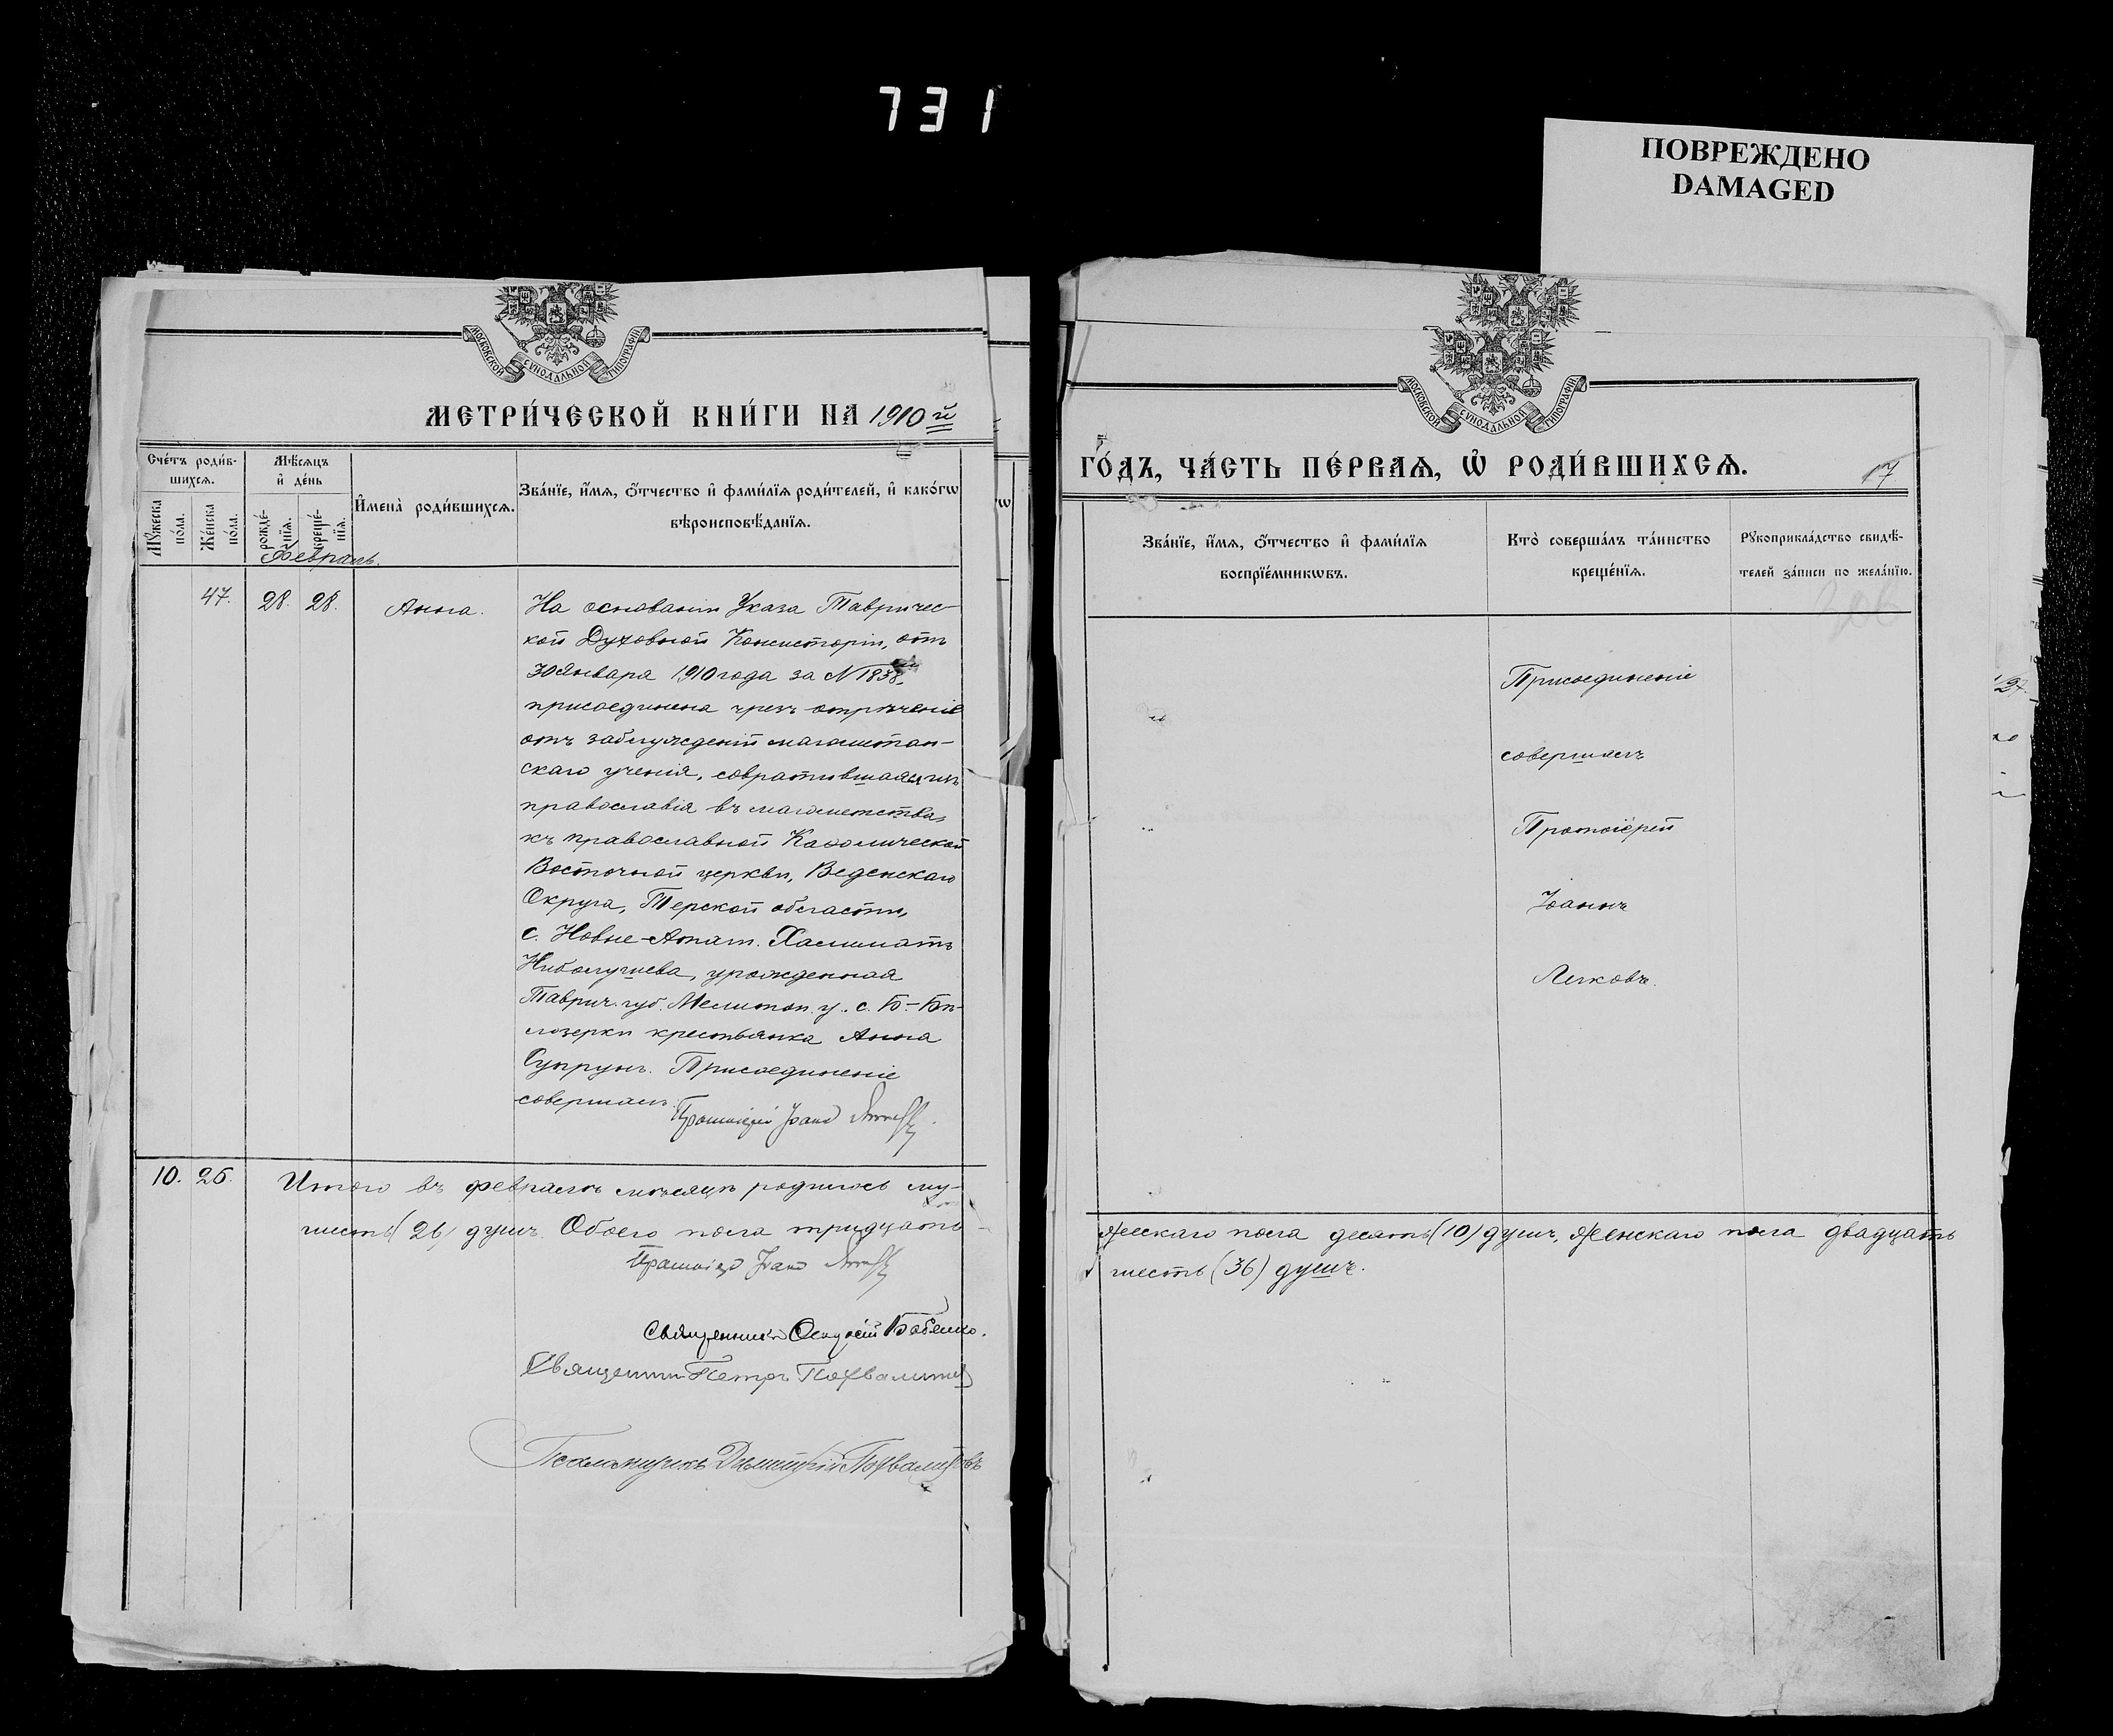 731
ПОВРЕЖДЕНО
DAMAGED
МОСКОВСКОЙ СѴНОДАЛЬНОЙ ТИПОГРАФІИ
МЕТРИ́ЧЕСКОЙ КНИ́ГИ НА 1910й
Сче́тъ роди́в-
шихсѧ.
Мꙋжеска по́ла.
Же́нска по́ла.
Мѣ́сѧцъ
и҆ де́нь
рожде́-
нїѧ.
креще́-
нїѧ.
И҆мена̀ роди́вшихсѧ.
Зва́нїе, и҆́мѧ, ѻ҆́тчество и҆ фами́лїѧ роди́телей, и҆ како́гѡ
вѣроисповѣ́данїѧ.
Февраль.
47. 28. 28. Анна.
На основаніи Указа Тавричес-
кой Духовной Консисторіи, отъ
30 Января 1910 года за N 1838,
присоединена чрезъ отрѣченіе
отъ заблужденій магометан-
скаго ученія, совратившаяся изъ
православія въ магометство,
къ православной Каѳолической
Восточной церкви, Веденскаго
Округа, Терской области,
с. Новые-Атаги. Халиматъ
Ниболугиева, урожденная
Таврич. губ. Мелитоп. у. с. Б.-Бѣ-
лозерки крестьянка Анна
Супрунъ. Присоединеніе
совершилъ
Протоіерей Іоаннъ
10. 26. Итого въ февралѣ мѣсяцѣ родилось му-
шесть (26) душъ. Обоего пола тридцать
Протоіер Іоанн
Священникъ Бабенко.
Священник Петръ Похвалитов
Псаломщикъ Димитрій Похвалитовъ
МОСКОВСКОЙ СѴНОДАЛЬНОЙ ТИПОГРАФІИ
ГО́ДЪ, ЧА́СТЬ ПЕ́РВАѦ, Ѡ҆ РОДИ́ВШИХСѦ.
17
Зва́нїе, и҆́мѧ, ѻ҆́тчество и҆ фами́лїѧ
воспрїе́мникѡвъ.
Кто̀ соверша́лъ та́инство
креще́нїѧ.
Рꙋкоприкла́дство свидѣ́-
телей за́писи по жела́нїю.
Присоединеніе
совершилъ
Протоіерей
Іоаннъ
Лиховъ.
жескаго пола десять (10) душъ, женскаго пола двадцать
шесть (36) душъ.